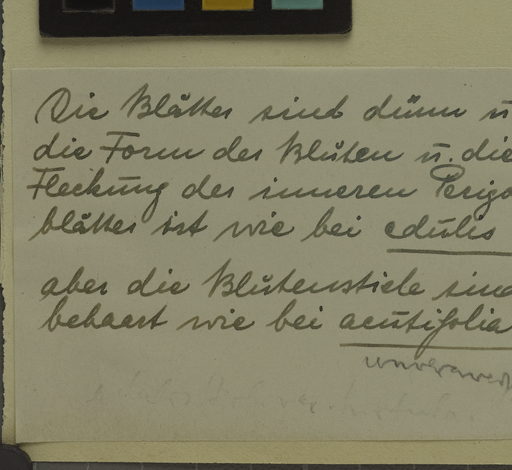 Die Blätter sind dünn u
die Form der Blüten u. die
Fleckung der inneren Perigo
blätter ist wie bei edulis
aber die Blütenstiele sind
behaart wie bei acutifolia